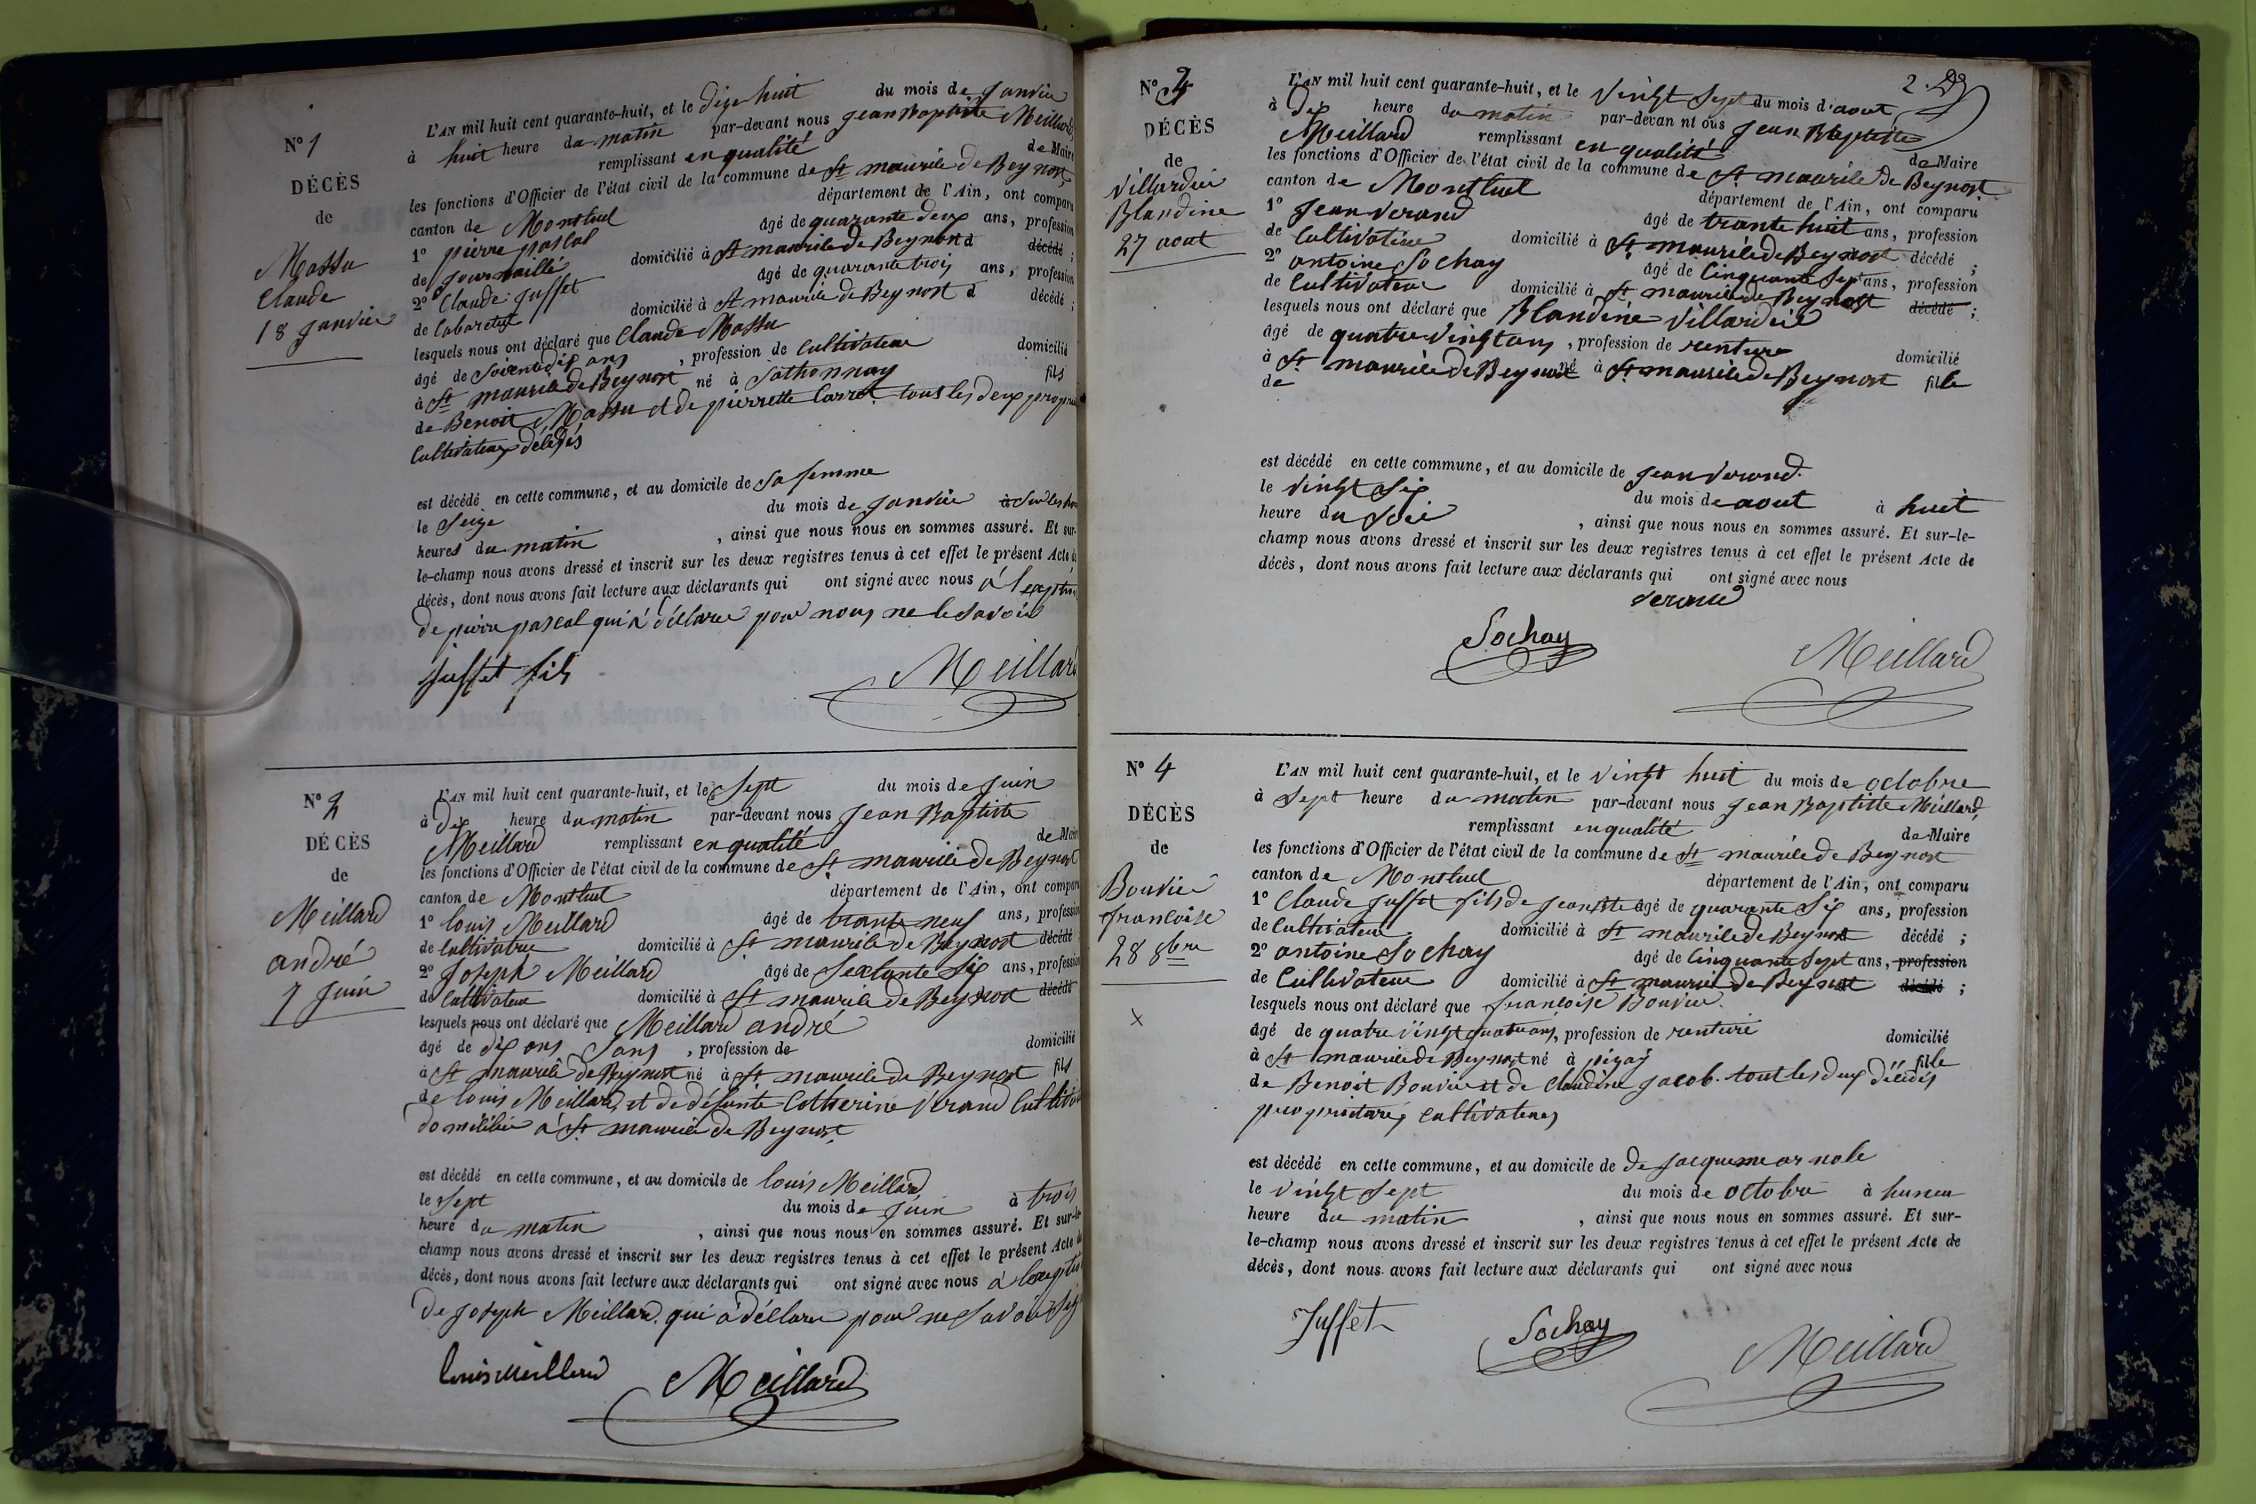 N° 1
DÉCÈS
de
Massu
Claude
18 Janvier
L'AN mil huit cent quarante-huit, et le dize huit du mois de Janvier
à huit heure du matin par-devant nous Jean Baptiste Meillard
remplissant en qualité de Maire
les fonctions d'Officier de l'état civil de la commune de St maurice de Beynost,
canton de Montluel département de l'Ain, ont comparu
1° pierre pascal âgé de quarante deux ans, profession
de Journaillé domicilié à St maurice de Beynost décédé ;
2° Claude Juffet âgé de quarante trois ans, profession
de Cabaretier domicilié à St maurice de Beynost décédé ;
lesquels nous ont déclaré que Claude Massu
âgé de Soixente dix ans, profession de Cultivateur domicilié
à St maurice de Beynost né à Sathonnay fils
de Benoit Massu et de pierrette Carret tous les deux
Cultivateurs décédés
est décédé en cette commune, et au domicile de Sa femme
le Seize du mois de Janvier à
heures du matin, ainsi que nous nous en sommes assuré. Et sur-
le-champ nous avons dressé et inscrit sur les deux registres tenus à cet effet le présent Acte de
décès, dont nous avons fait lecture aux déclarants qui ont signé avec nous à
de pierre pascal qui à déclaré pour nous ne le Savoir
Juffet fils Meillard
N° 2
DÉCÈS
de
Meillard
andré
7 Juin
L'AN mil huit cent quarante-huit, et le Sept du mois de Juin
à dix heure du matin par-devant nous Jean Baptiste
Meillard remplissant en qualité de Maire
les fonctions d'Officier de l'état civil de la commune de St maurice de Beynost
canton de Montluel département de l'Ain, ont comparu
1° louis Meillard âgé de trante neuf ans, profession
de Cultivateur domicilié à St maurice de Beynost décédé
2° Joseph Meillard âgé de Sexsante Six ans, profession
de Cultivateur domicilié à St maurice de Beynost décédé
lesquels nous ont déclaré que Meillard andré
âgé de dix ans Sans, profession de domicilié
à St maurice de Beynost né à St maurice de Beynost fils
de louis Meillard et de défunte Catherine Verand
domicilié à St maurice de Beynost
est décédé en cette commune, et au domicile de louis Meillard
le Sept du mois de Juin à trois
heure du matin, ainsi que nous nous en sommes assuré. Et sur-le-
champ nous avons dressé et inscrit sur les deux registres tenus à cet effet le présent Acte de
décès, dont nous avons fait lecture aux déclarants qui ont signé avec nous à
de Joseph Meillard qui à déclaré pour ne Savoir
louis Meillard Meillard
2
N° 3
DÉCÈS
de
Villardier
Blandine
27 aout
L'AN mil huit cent quarante-huit, et le Vingt Sept du mois d'aout
à dix heure du matin par-devan nt ous Jean Baptiste
Meillard remplissant en qualité de Maire
les fonctions d'Officier de l'état civil de la commune de St maurice de Beynost
canton de Montluel département de l'Ain, ont comparu
1° Jean Verand âgé de trante huit ans, profession
de Cultivateur domicilié à St maurice de Beynost décédé ;
2° antoine Sochay âgé de Cinquante Sept ans, profession
de Cultivateur domicilié à St maurice de Beynost décédé ;
lesquels nous ont déclaré que Blandine Villardier
âgé de quatre Vingt ans, profession de domicilié
à St maurice de Beynost né à St maurice de Beynost fille
de
est décédé en cette commune, et au domicile de Jean Verand
le Vingt Six du mois de aout à huit
heure du Soir, ainsi que nous nous en sommes assuré. Et sur-le-
champ nous avons dressé et inscrit sur les deux registres tenus à cet effet le présent Acte de
décès, dont nous avons fait lecture aux déclarants qui ont signé avec nous
Verand
Sochay Meillard
N° 4
DÉCÈS
de
Bouvier
francoise
28 8bre
X
L'AN mil huit cent quarante-huit, et le Vingt huit du mois de octobre
à Sept heure du matin par-devant nous Jean Baptiste Meillard,
remplissant en qualité de Maire
les fonctions d'Officier de l'état civil de la commune de St maurice de Beynost
canton de Montluel département de l'Ain, ont comparu
1° Claude Juffet fils de Jean âgé de quarante Six ans, profession
de Cultivateur domicilié à St maurice de Beynost décédé ;
2° antoine Sochay âgé de Cinquante Sept ans, profession
de Cultivateur domicilié à St maurice de Beynost décédé ;
lesquels nous ont déclaré que francoise Bouvier
âgé de quatre Vingt quatre ans, profession de domicilié
à St maurice de Beynost né à pizay fille
de Benoit Bouvier et de Claudine Jacob. tout les deux décédés
propriétaires Cultivateurs
est décédé en cette commune, et au domicile de de
le Vingt Sept du mois de octobre à
heure du matin, ainsi que nous nous en sommes assuré. Et sur-
le-champ nous avons dressé et inscrit sur les deux registres tenus à cet effet le présent Acte de
décès, dont nous avons fait lecture aux déclarants qui ont signé avec nous
Juffet Sochay Meillard